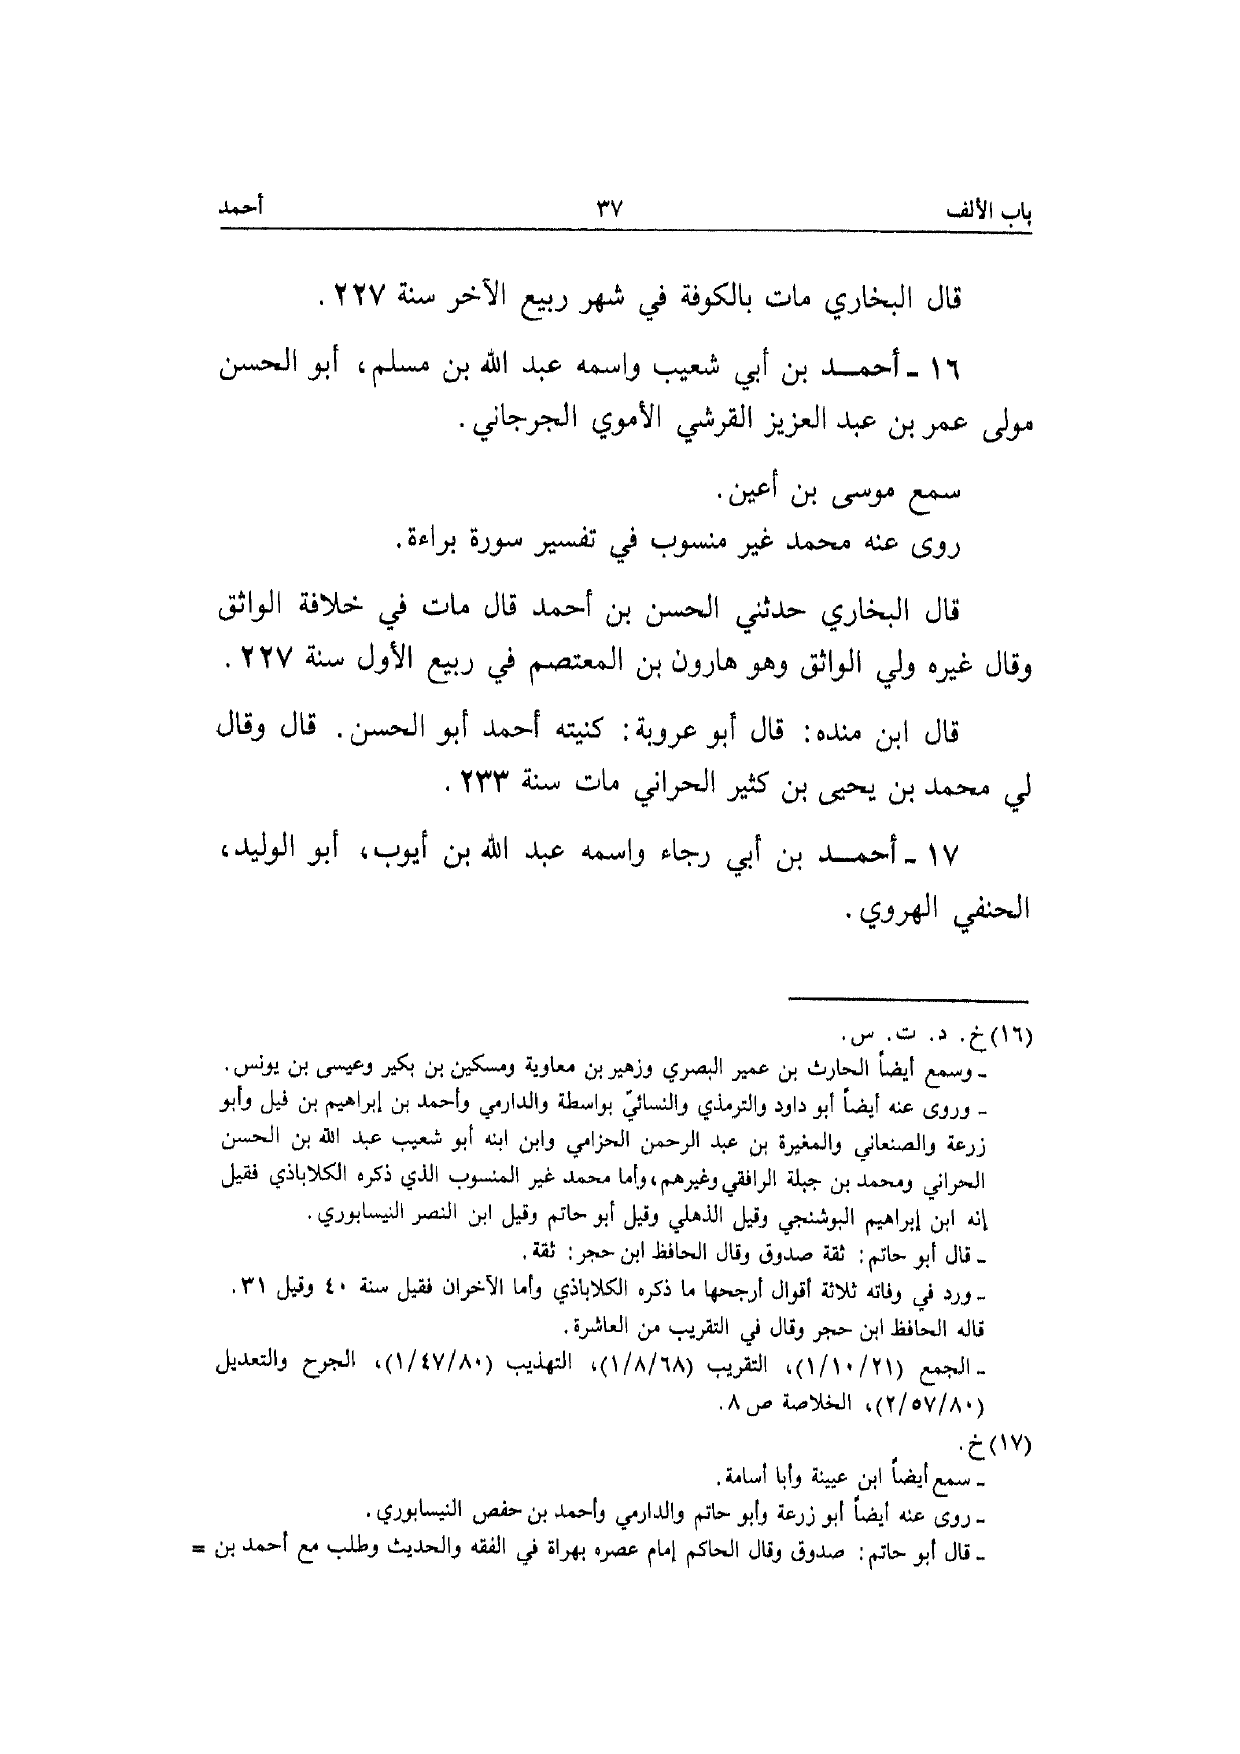 باب الألف ٣٧ أحمد
قال البخاري مات بالكوفة في شهر ربيع الآخر سنة ٢٢٧ .
١٦ - أحمد بن أبي شعيب واسمه عبد الله بن مسلم، أبو الحسن
مولى عمر بن عبد العزيز القرشي الأموي الجرجاني .
سمع موسى بن أعين.
روى عنه محمد غير منسوب في تفسير سورة براءة.
قال البخاري حدثني الحسن بن أحمد قال مات في خلافة الواثق
وقال غيره ولي الواثق وهو هارون بن المعتصم في ربيع الأول سنة ٢٢٧ .
قال ابن منده: قال أبو عروبة: كنيته أحمد أبو الحسن. قال وقال
لي محمد بن يحيى بن كثير الحراني مات سنة ٢٣٣ .
١٧ - أحمد بن أبي رجاء واسمه عبد الله بن أيوب، أبو الوليد،
الحنفي الهروي.
(١٦) خ. د. ت. س.
- وسمع أيضاً الحارث بن عمير البصري وزهير بن معاوية ومسكين بن بكير وعيسى بن يونس.
- وروى عنه أيضاً أبو داود والترمذي والنسائيّ بواسطة والدارمي وأحمد بن إبراهيم بن فيل وأبو
زرعة والصنعاني والمغيرة بن عبد الرحمن الحزامي وابن ابنه أبو شعيب عبد الله بن الحسن
الحراني ومحمد بن جبلة الرافقي وغيرهم، وأما محمد غير المنسوب الذي ذكره الكلاباذي فقيل
إنه ابن إبراهيم البوشنجي وقيل الذهلي وقيل أبو حاتم وقيل ابن النصر النيسابوري.
- قال أبو حاتم: ثقة صدوق وقال الحافظ ابن حجر: ثقة.
- ورد في وفاته ثلاثة أقوال أرجحها ما ذكره الكلاباذي وأما الآخران فقيل سنة ٤٠ وقيل ٣١.
قاله الحافظ ابن حجر وقال في التقريب من العاشرة.
- الجمع (١/١٠/٢١)، التقريب (١/٨/٦٨)، التهذيب (١/٤٧/٨٠)، الجرح والتعديل
(٢/٥٧/٨٠)، الخلاصة ص ٨.
(١٧) خ.
- سمع أيضاً ابن عيينة وأبا أسامة.
- روى عنه أيضاً أبو زرعة وأبو حاتم والدارمي وأحمد بن حفص النيسابوري.
- قال أبو حاتم: صدوق وقال الحاكم إمام عصره بهراة في الفقه والحديث وطلب مع أحمد بن =